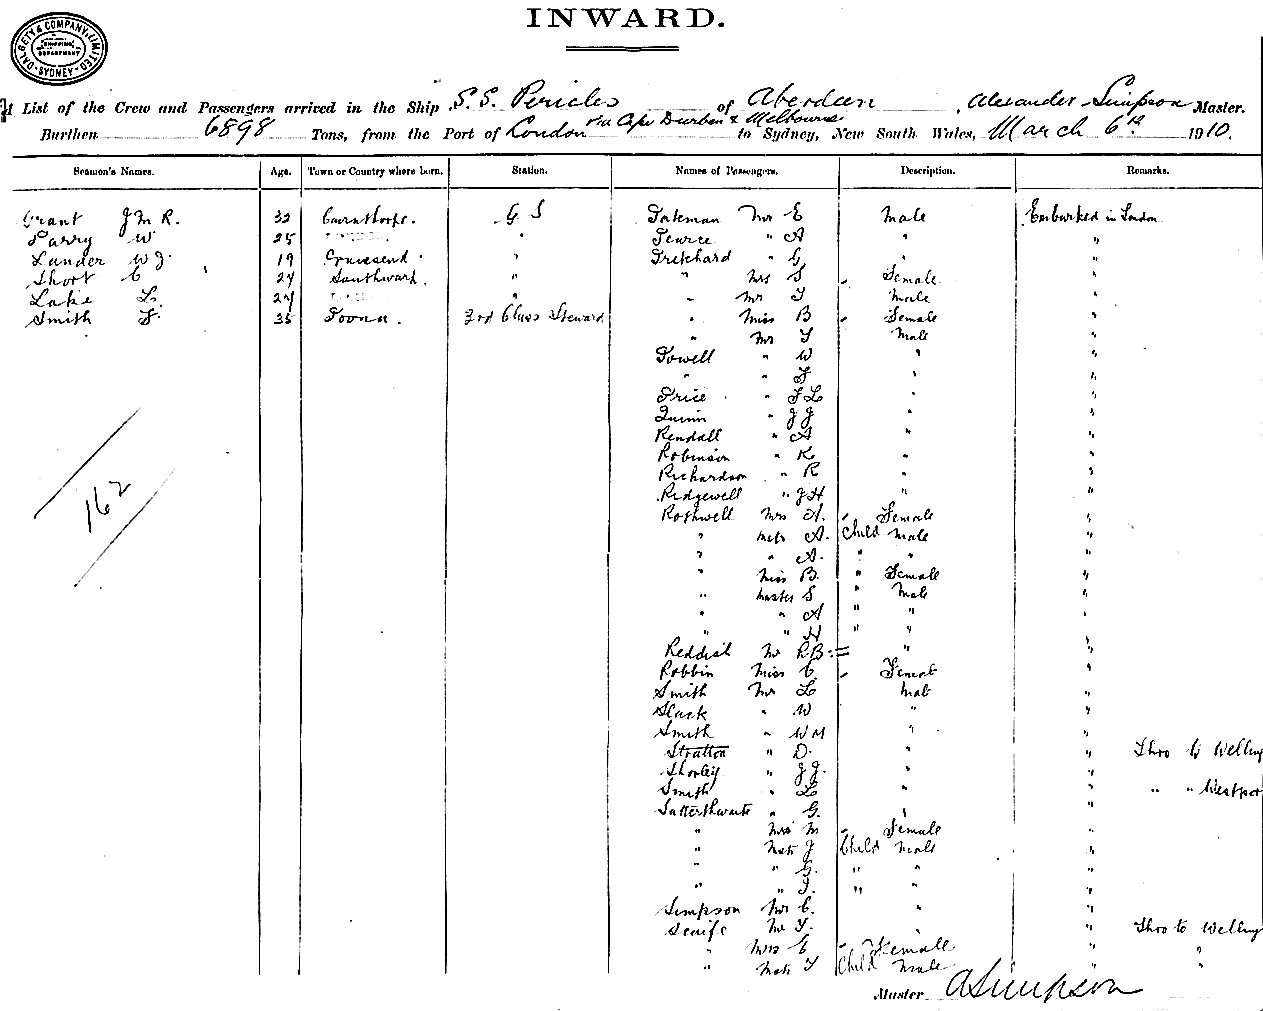 INWARD.
DALGETY & COMPANY, LIMITED
SHIPPING DEPARTMENT
SYDNEY
List of the Crew and Passengers arrived in the Ship S.S. Pericles of Aberdeen, Alexander Simpson Master.
Burthen 6898 Tons, from the Port of London via Cape Durban & Melbourne to Sydney, New South Wales, March 6th 1910.
Seamen's Names. Age. Town or Country where born. Station. Names of Passengers. Description. Remarks.
Grant J M R. 32 G S Mr E Male Embarked in London
Parry W 25 " Pearce " A " "
Lander W J. 19 Gravesend. " Pritchard " G " "
Short C 24 Southwark. " " Mrs S Female "
Lake L. 24 " " Mr Y Male "
Smith F. 35 3rd Class Steward " Miss B Female "
" Mr Y Male "
Powell " W " "
" " F " "
Price " F L " "
Quinn " J J " "
Rendall " A " "
Robinson " K " "
Richardson " R " "
Ridgewell " J H " "
Rothwell Mrs A. Female "
" Mstr A. Child Male "
" " A. " " "
" Miss B. " Female "
" Master S " Male "
" " A " " "
" " H " " "
Reddish Mr R B " "
Robbin Miss C Female "
Smith Mr L Male "
Slack " W " "
Smith " W M " "
Stratton " D. " " Thro to Welling
Shorley " J J. " "
Smith " L " " " " Westpor
Satterthwaite " G. " "
" Mrs M Female "
" Mstr J Child Male "
" " G. " " "
" " J. " " "
Simpson Mr C. " "
Mr Y. " " Thro to Welling
" Mrs E Female " "
" Mstr Y Child Male " "
Master A Simpson
162